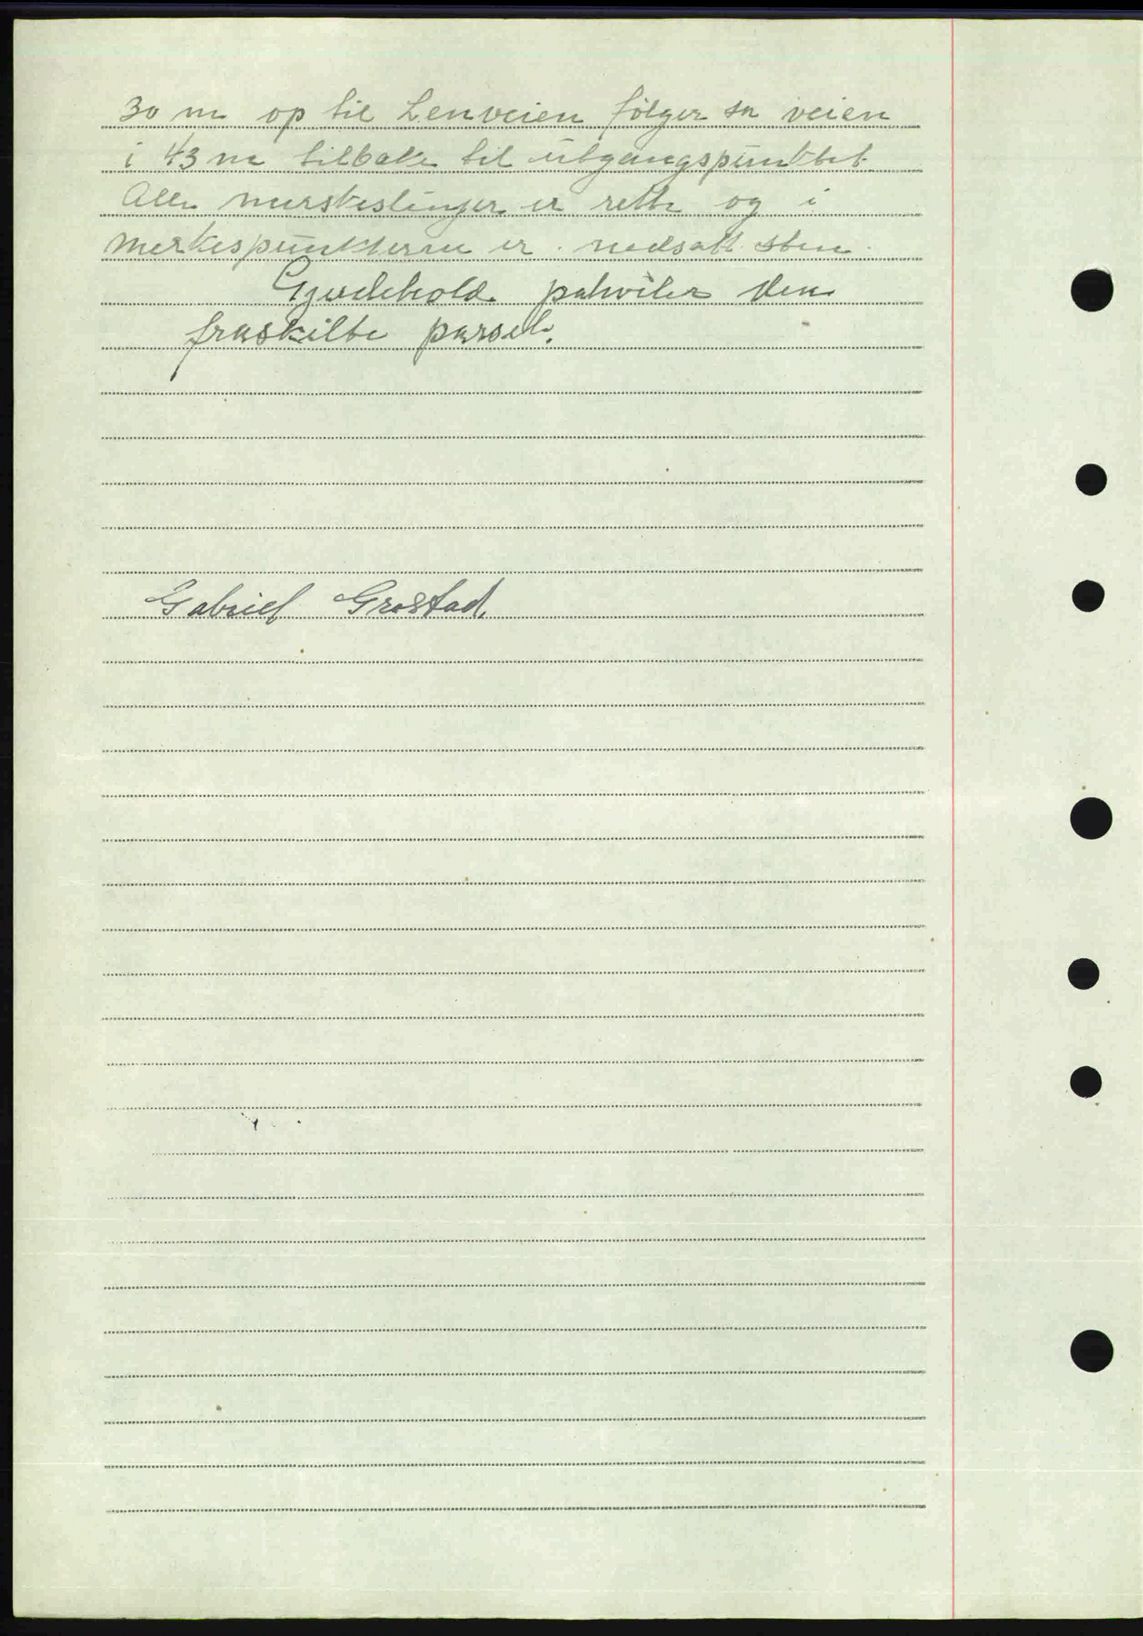 30 m op til Lenveien følger sa veien
i 43 m tilbake til utgangspunktet.
Alle merkeslinjer er rette og i
merkespunkterne er nedsatt sten.
Gjerdehold påhviler den
fraskilte parsel.
Gabriel Grøstad.